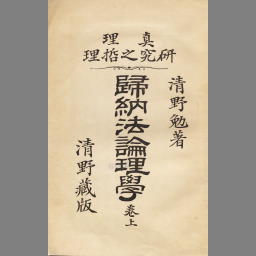 真理
研究之哲理
清野勉著
歸納法論理學
卷上
清野藏版